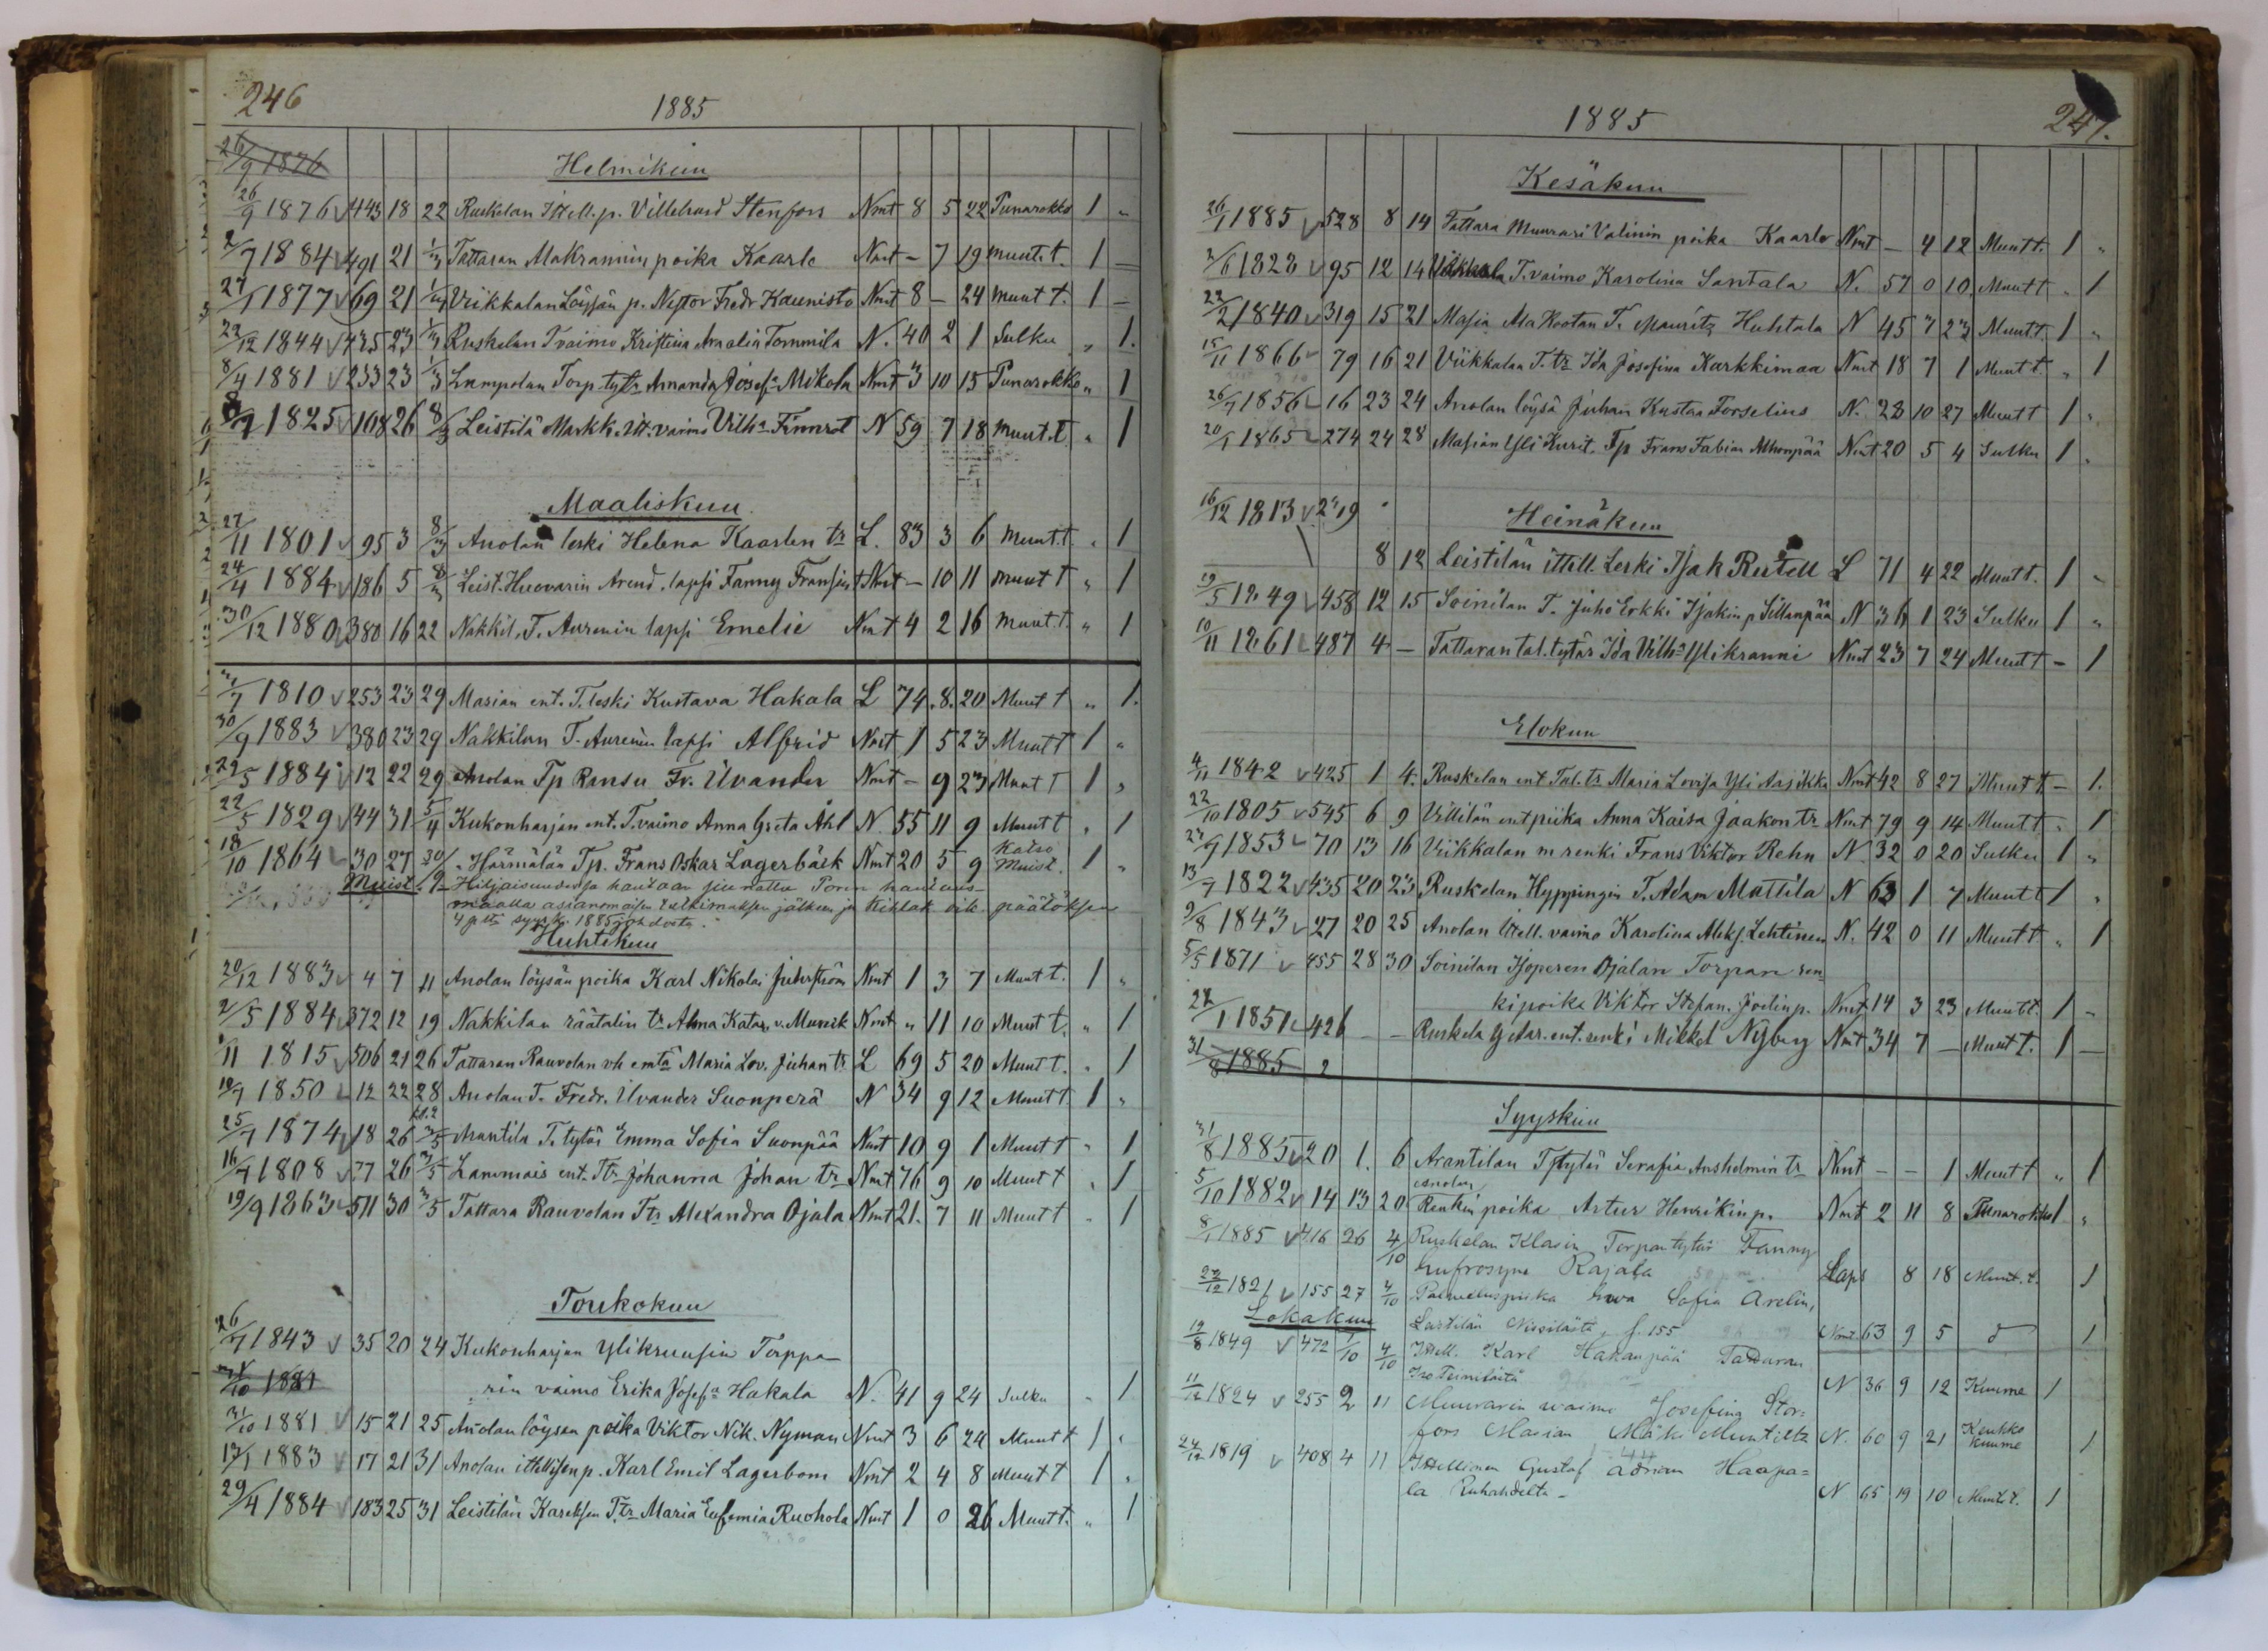 246
1885
26/9 1876
Helmikuu
26/9 1876 443 18 22 Ruskelan Ittell. p. Villehard Stenfors Nmt 8 5 22 Punarokko 1 "
2/7 1884 491 21 1/3 Tattaran Makrannin poika Kaarle Nmt – 7 19 muut t. 1 –
27/1 1877 69 21 Viikkalan Löysän p. Nestor Fredr Kaunisto Nmt 8 – 24 muut t. 1 –
22/12 1844 435 23 1/3 Ruskelan T vaimo Kristina Amalia Tommila N. 40 2 1 Sulku " 1.
8/4 1881 233 23 1/3 Lampolan Torp. tytr Amanda Josefa Mikola Nmt 3 10 15 Punarokko " 1
1825 108 26 8/3 Leistilä Markk. Itt. vaimo Vilha Finnrot N 59 7 18 muut. t. " 1
Maaliskuu
27/11 1801 95 3 8/3 Anolan leski Helena Kaarlen tr L. 83 3 6 muut. t. " 1
24/4 1884 186 5 8/3 Leist. Huovarin Arend. lapsi Fanny Nmt – 10 11 muut t " 1
30/12 1880 380 16 22 Nakkil. T. Aurenin lapsi Emelie Nmt 4 2 16 muut. t. " 1
1810 253 23 29 Masian ent. T. leski Kustava Hakala L 74. 8. 20 Muut t " 1.
30/9 1883 380 23 29 Nakkilan T. Aurenin lapsi Alfrid Nmt 1 5 23 Muut t 1 "
29/5 1884 12 22 29 Anolan Tp Ransu Fr. Uvander Nmt – 9 23 Muut t 1 "
22/5 1829 44 31 5/4 Kukonharjan ent. T. vaimo Anna Greta Åhl N. 55 11 9 Muut t " 1
18/10 1864 30 27 30/9 Hormälän Tp. Frans Oskar Lagerbäck Nmt 20 5 9 Katso Muist. 1 "
Muist. Hiljaisuudessa hautaan siunattu Porin hautaus-
maalla asianomaisen tutkimuksen jälkeen ja oik. päätöksen
4 p:ltä syysk. 1885 johdosta.
Huhtikuu
20/12 1883 4 7 11 Anolan löysän poika Karl Nikolai Nmt 1 3 7 Muut t. 1 "
2/5 1884 372 12 19 Nakkilan räätalin tr Alma Katar. v. Nmt " 11 10 Muut t. " 1
1815 506 21 26 Tattaran Rauvolan vh emtä Maria Lov. Juhan tr L 69 5 20 Muut t. " 1
1850 12 22 28 Anolan T. Fredr. Uvander Suonperä N 34 9 12 Muut t 1 "
25/7 1874 18 26 3/5 Arantila T. tytär Emma Sofia Suonpää Nmt 10 9 1 Muut t " 1
16/7 1808 77 26 3/5 Lammais ent. Ttr Johanna Johan tr Nmt 76 9 10 Muut t " 1
19/9 1863 511 30 3/5 Tattara Rauvolan Ttr Alexandra Ojala Nmt 21. 7 11 Muut t " 1
Toukokuu
26/7 1843 35 20 24 Kukonharjan Ylikruusin Torppa-
1881
rin vaimo Erika Josefa Hakala N. 41 9 24 Sulku " 1
31/10 1881 15 21 25 Anolan löysän poika Viktor Nik. Nyman Nmt 3 6 24 Muut t 1 "
13/1 1883 17 21 31 Anolan ittellisen p. Karl Emil Lagerbom Nmt 2 4 8 Muut t 1 "
29/4 1884 183 25 31 Leistilän Kareksen T. tr Maria Eufemia Ruohola Nmt 1 0 26 Muut t. " 1
1885
247.
Kesäkuu
26/1 1885 528 8 14 Tattara Muurari Valinin poika Kaarlo Nmt – 4 12 Muut t. 1 "
2/6 1828 95 12 14 T. vaimo Karolina Santala N. 57 0 10 Muut t " 1
22/2 1840 319 15 21 Masia Ala Kootan T. Mauritz Huhtala N 45 3 23 Muut t. 1 "
15/11 1866 79 16 21 Viikkalan T. tr Ida Josefina Karkkimaa Nmt 18 7 1 Muut t. " 1
26/7 1856 16 23 24 Anolan löysä Juhan Kustaa Forselius N. 28 10 27 Muut t 1 "
20/1 1865 274 24 28 Masian Yli Kurit. Tp Frans Fabian Alhonpää Nmt 20 5 4 Sulku 1 "
16/12 1813 219
Heinäkuu
8 12 Leistilän ittell. Leski Isak Rutell L 71 4 22 Muut t. 1 "
19/5 1849 458 12 15 Soinilan T. Juho Erkki Isakin p Sillanpää N 36 1 23 Sulku 1 "
10/11 1861 487 4 – Tattaran tal. tytär Ida Vilha Ylikranni Nmt 23 7 24 Muut t – 1
Elokuu
4/11 1842 425 1 4. Ruskelan ent Tal. tr Maria Lovisa Yli Nmt 42 8 27 Muut t – 1.
22/10 1805 545 6 9 Villilän ent piika Anna Kaisa Jaakon tr Nmt 79 9 14 Muut t " 1
27/9 1853 70 13 16 Viikkalan m renki Frans Viktor Rehn N. 32 0 20 Sulku 1 "
13/7 1822 435 20 23 Ruskelan Hyppingin T. Adam Mattila N 63 1 7 Muut t 1 "
9/8 1843 27 20 25 Anolan Ittell. vaimo Karolina Aleks. Lehtinen N. 42 0 11 Muut t " 1
5/5 1871 455 28 30 Soinilan Isoperen Ojalan Torpan ren-
kipoika Viktor Stefan. Joelin p. Nmt 14 3 23 Muut t. 1 "
28/1 1851 426 – – Ruskela Y ent. renki Mikkel Nyberg Nmt 34 7 – Muut t. 1 –
31/8 1885 2
Syyskuu
31/8 1885 20 1. 6 Arantilan T tytär Serafia Anshelmin tr Nmt – – 1 Muut t " 1
Anolan
5/10 1882 14 13 20 Renkin poika Artur Henrikin p. Nmt 2 11 8 Punarokko 1 "
8/1 1885 416 26 4/10 Ruskelan Klasin Torpan tytär Fanny
Eufrosyne Rajala Laps 8 18 Muut. t. 1
22/12 1821 155 27 4/10 Palveluspiika Eva Sofia Avelin,
Leistilän Nissilästä, s. 155 Nmt 63 9 5 1
Lokakuu
19/8 1849 472 1/10 4/10 Ittell. Karl Hakanpää Tattaran
N 36 9 12 Kuume 1
11/12 1824 255 2 11 Muurarin vaimo Josefina Stor=
fors Masian Mäki N. 60 9 21 Keuhko kuume 1
24/12 1819 408 4 11 Ittellinen Gustaf Adrian Haapa=
la Ruhandelta – N 65 19 10 Muut t. 1